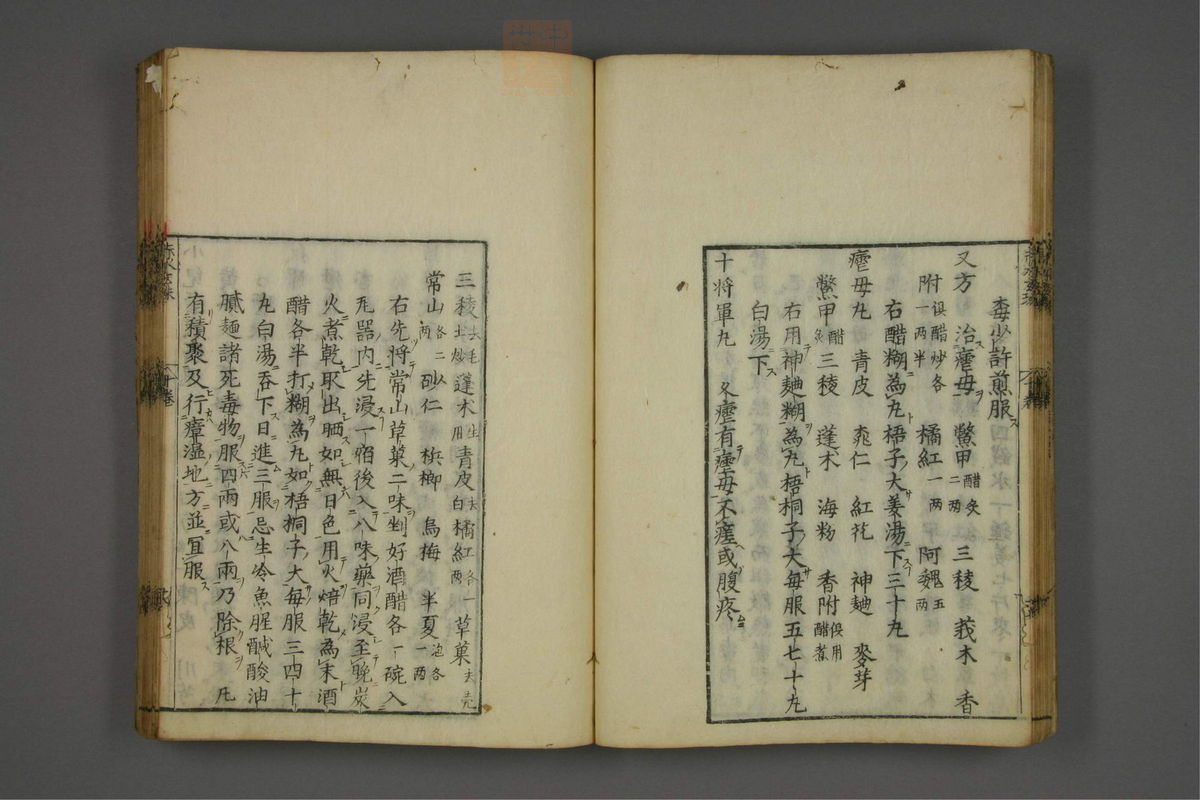 毒少許煎服
又方　治瘧母　鱉甲醋炙二两　三稜　莪朮　香
附俱醋炒各一两半　橘紅一两　阿魏五两
右醋糊為丸梧子大姜湯下三十丸
瘧母丸　青皮　桃仁　紅花　神麯　麥芽
鱉甲醋炙　三稜　蓬朮　海粉　香附俱用醋煮
右用神麯糊為丸梧桐子大每服五七十丸
白湯下
十将軍丸　久瘧有瘧母不瘥或腹疼
三稜去毛土炒　蓬朮生用　青皮去白　橘紅各一两　草菓去壳
常山各二两　砂仁　梹榔　烏梅　半夏泡各一两
右先将常山草菓二味剉好酒醋各一碗入
瓦器内先浸一宿後入八味藥同浸至晚炭
火煮乾取出晒如無日色用火焙乾為末酒
醋各半打糊為丸如梧桐子大每服三四十
丸白湯吞下日進三服忌生冷魚腥鹹酸油
膩麺諸死毒物服四兩或八兩乃除根　凡
有積聚及行瘴濕地方並宜服